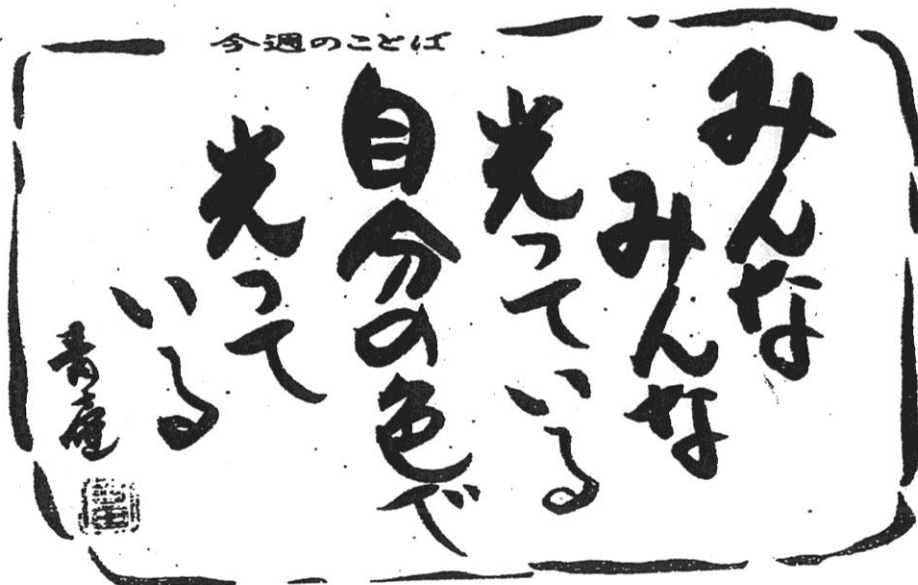 今週のことば
みんな
みんな
光っている
自分の色で
光って
いる